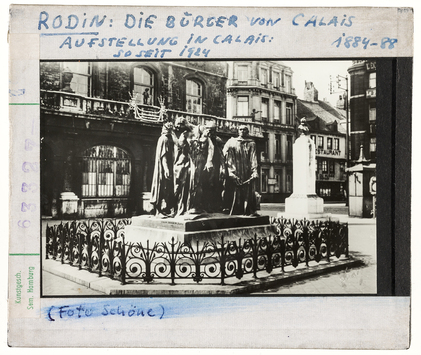 RODIN: DIE BÜRGER VON CALAIS
AUFSTELLUNG IN CALAIS: 1884-88
SO SEIT 1924
Kunstgesch.
Sem. Hamburg
(Foto Schöne)